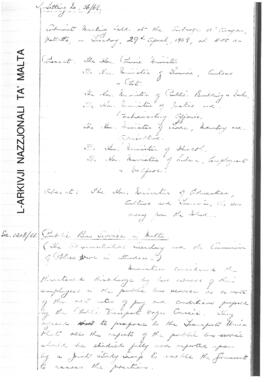 Sitting No. 26/68.
Cabinet Meeting held at the Auberge d'Aragon,
Valletta, on Monday, 29th April, 1968, at
Present: The Hon. Prime Minister
The Hon. Minister of Finance, Customs
& Port
The Hon. Minister of Public Building & Works
The Hon. Minister of Justice and
Parliamentary Affairs
The Hon. Minister of Trade, Industry and
Agriculture
The Hon. Minister of Health
The Hon. Minister of Labour, Employment
& Welfare
Absent: The Hon. Minister of Education,
Culture and Tourism, is
away from the Island.
L-ARKIVJI NAZZJONALI TA' MALTA
Public Bus Service in Malta
(The Parliamentary Secretary and the Commissioner
of Police were in attendance.)
Ministers considered the
threatened discharge by bus owners of their
employees in the public bus service as a result
of the new rates of pay and conditions proposed
by the Public Transport Wages Council. They
agreed to propose to the Transport Union
that the aspects of the public bus service
should be studied fully and reported upon
by a joint study group to enable the Government
to assess the position.